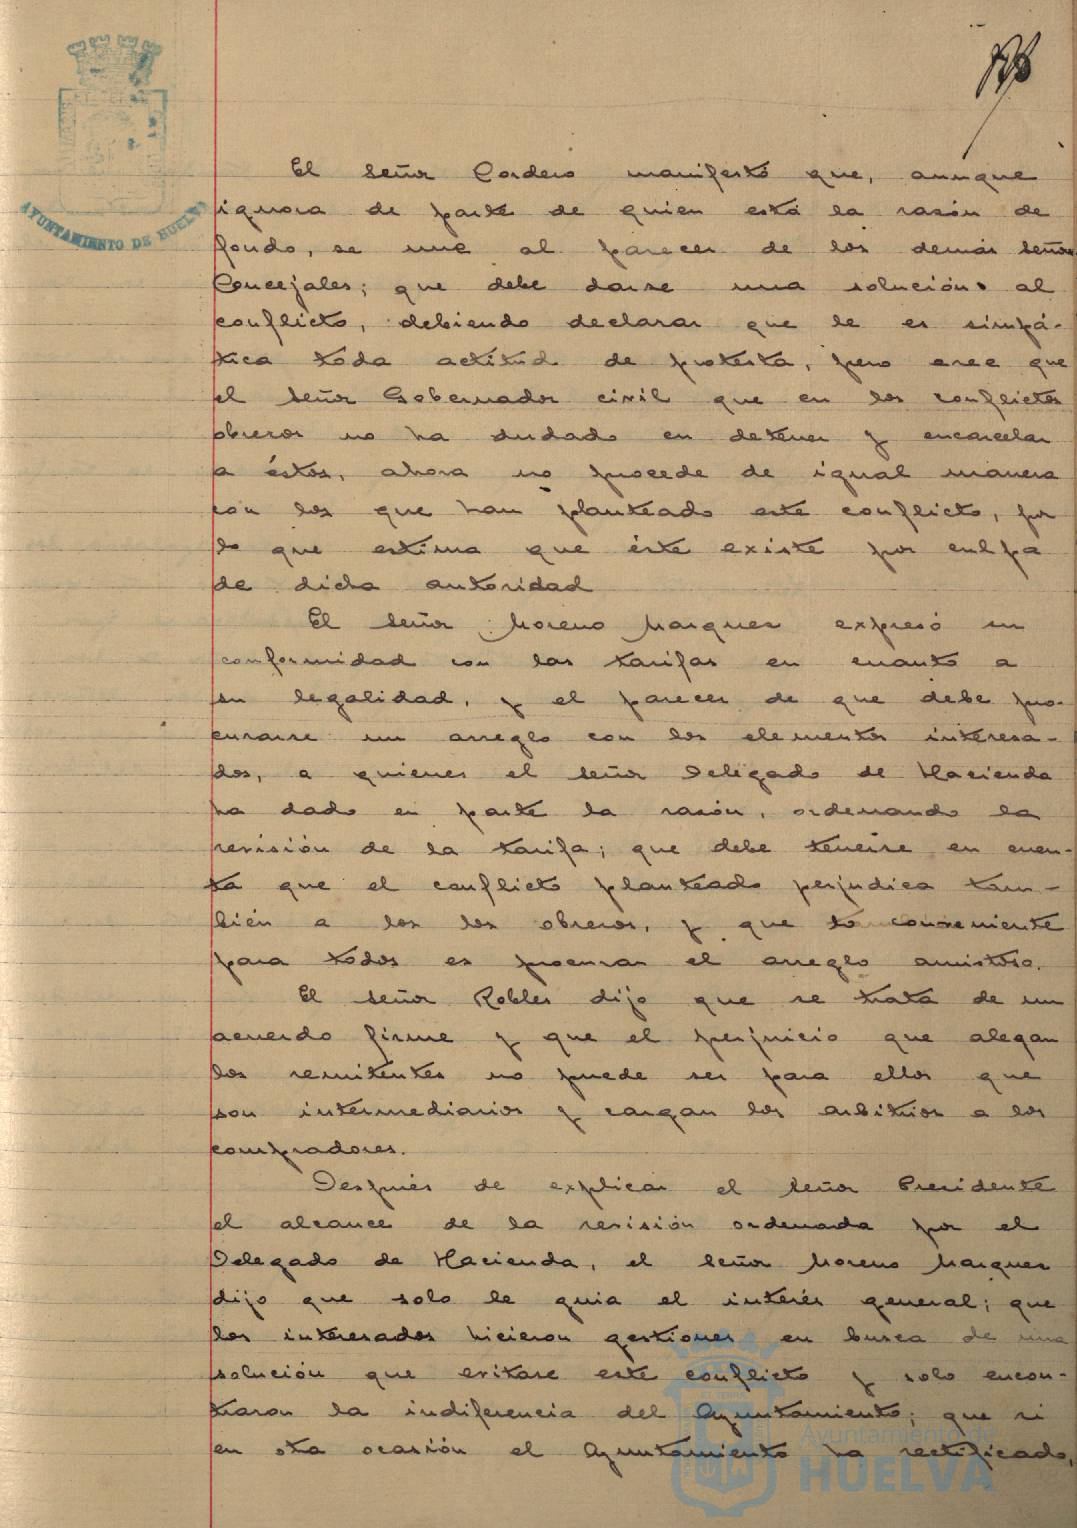 El señor Cordero manifestó que, aunque
ignora de parte de quien está la rasón de
fondo, se une al parecer de los demás señores
Concejales; que debe darse una solución al
conflicto, debiendo declarar que le es simpá-
tica toda actitud de protesta, pero cree que
el señor Gobernador civil que en los conflictos
obreros no ha dudado en detener y encarcelar
a éstos, ahora no procede de igual manera
con los que han planteado este conflicto, por
lo que estima que éste existe por culpa
de dicha autoridad
El señor Moreno Marquez expresó su
conformidad con las tarifas en cuanto a
su legalidad, y el parecer de que debe pro-
curarse un arreglo con los elementos interesa-
dos, a quienes el señor Delegado de Hacienda
ha dado en parte la rasón, ordenando la
revisión de la tarifa; que debe tenerse en cuen-
ta que el conflicto planteado perjudica tam-
bién a los los obreros, y que lo conveniente
para todos es procurar el arreglo amistoso.
El señor Robles dijo que se trata de un
acuerdo firme y que el perjuicio que alegan
los remitentes no puede ser para ellos que
son intermediarios y cargan los arbitrios a los
compradores.
Después de explicar el señor Presidente
el alcance de la revisión ordenada por el
Delegado de Hacienda, el señor Moreno Marquez
dijo que solo le guia el interés general; que
los interesados hicieron gestiones en busca de una
solución que evitase este conflicto y solo encon-
traron la indiferencia del Ayuntamiento; que si
en otra ocasión el Ayuntamiento ha rectificado,
AYUNTAMIENTO DE HUELVA
Ayuntamiento de
HUELVA